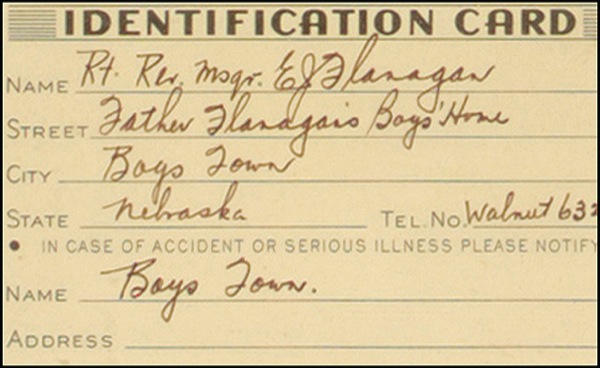 IDENTIFICATION CARD
NAME Rt. Rev. Msgr. E J Flanagan
STREET Father Flanagan's Boys' Home
CITY Boys Town
STATE Nebraska TEL. NO. Walnut 632
• IN CASE OF ACCIDENT OR SERIOUS ILLNESS PLEASE NOTIFY
NAME Boys Town.
ADDRESS